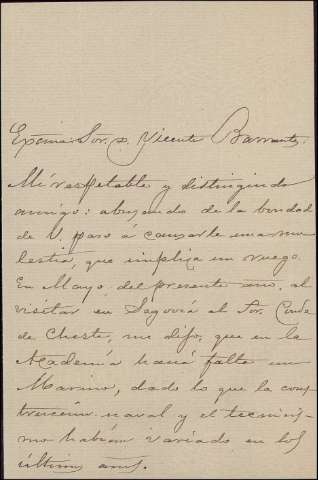 Excmo. Sor. D. Vicente Barrantes.
Mi respetable y distinguido
amigo: abusando de la bondad
de V. paso á causarle una mo-
lestia, que implica un ruego.
En Mayo del presente año, al
visitar en Segovia al Sor. Conde
de Cheste, me dijo, que en la
Academia hacia falta un
Marino, dado lo que la cons-
trucción naval y el tecnicis-
mo habian variado en los
últimos años.